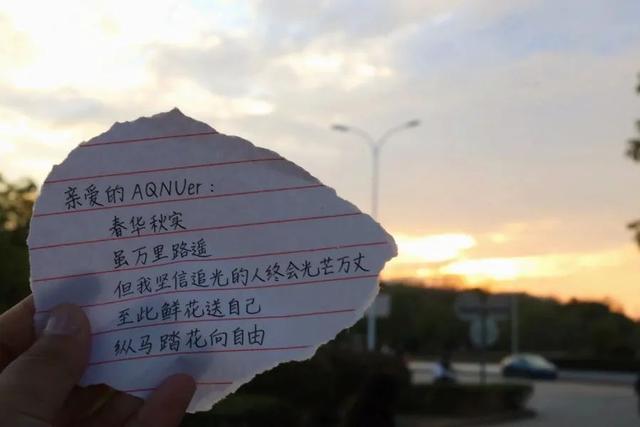 亲爱的 AQNUer：
春华秋实
虽万里路遥
但我坚信追光的人终会光芒万丈
至此鲜花送自己
纵马踏花向自由